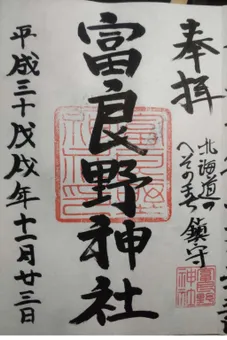 奉拝
北海道の
へその王 鎮守
富良野神社
平成三十戊戌年十一月廿三日
富良野
神社